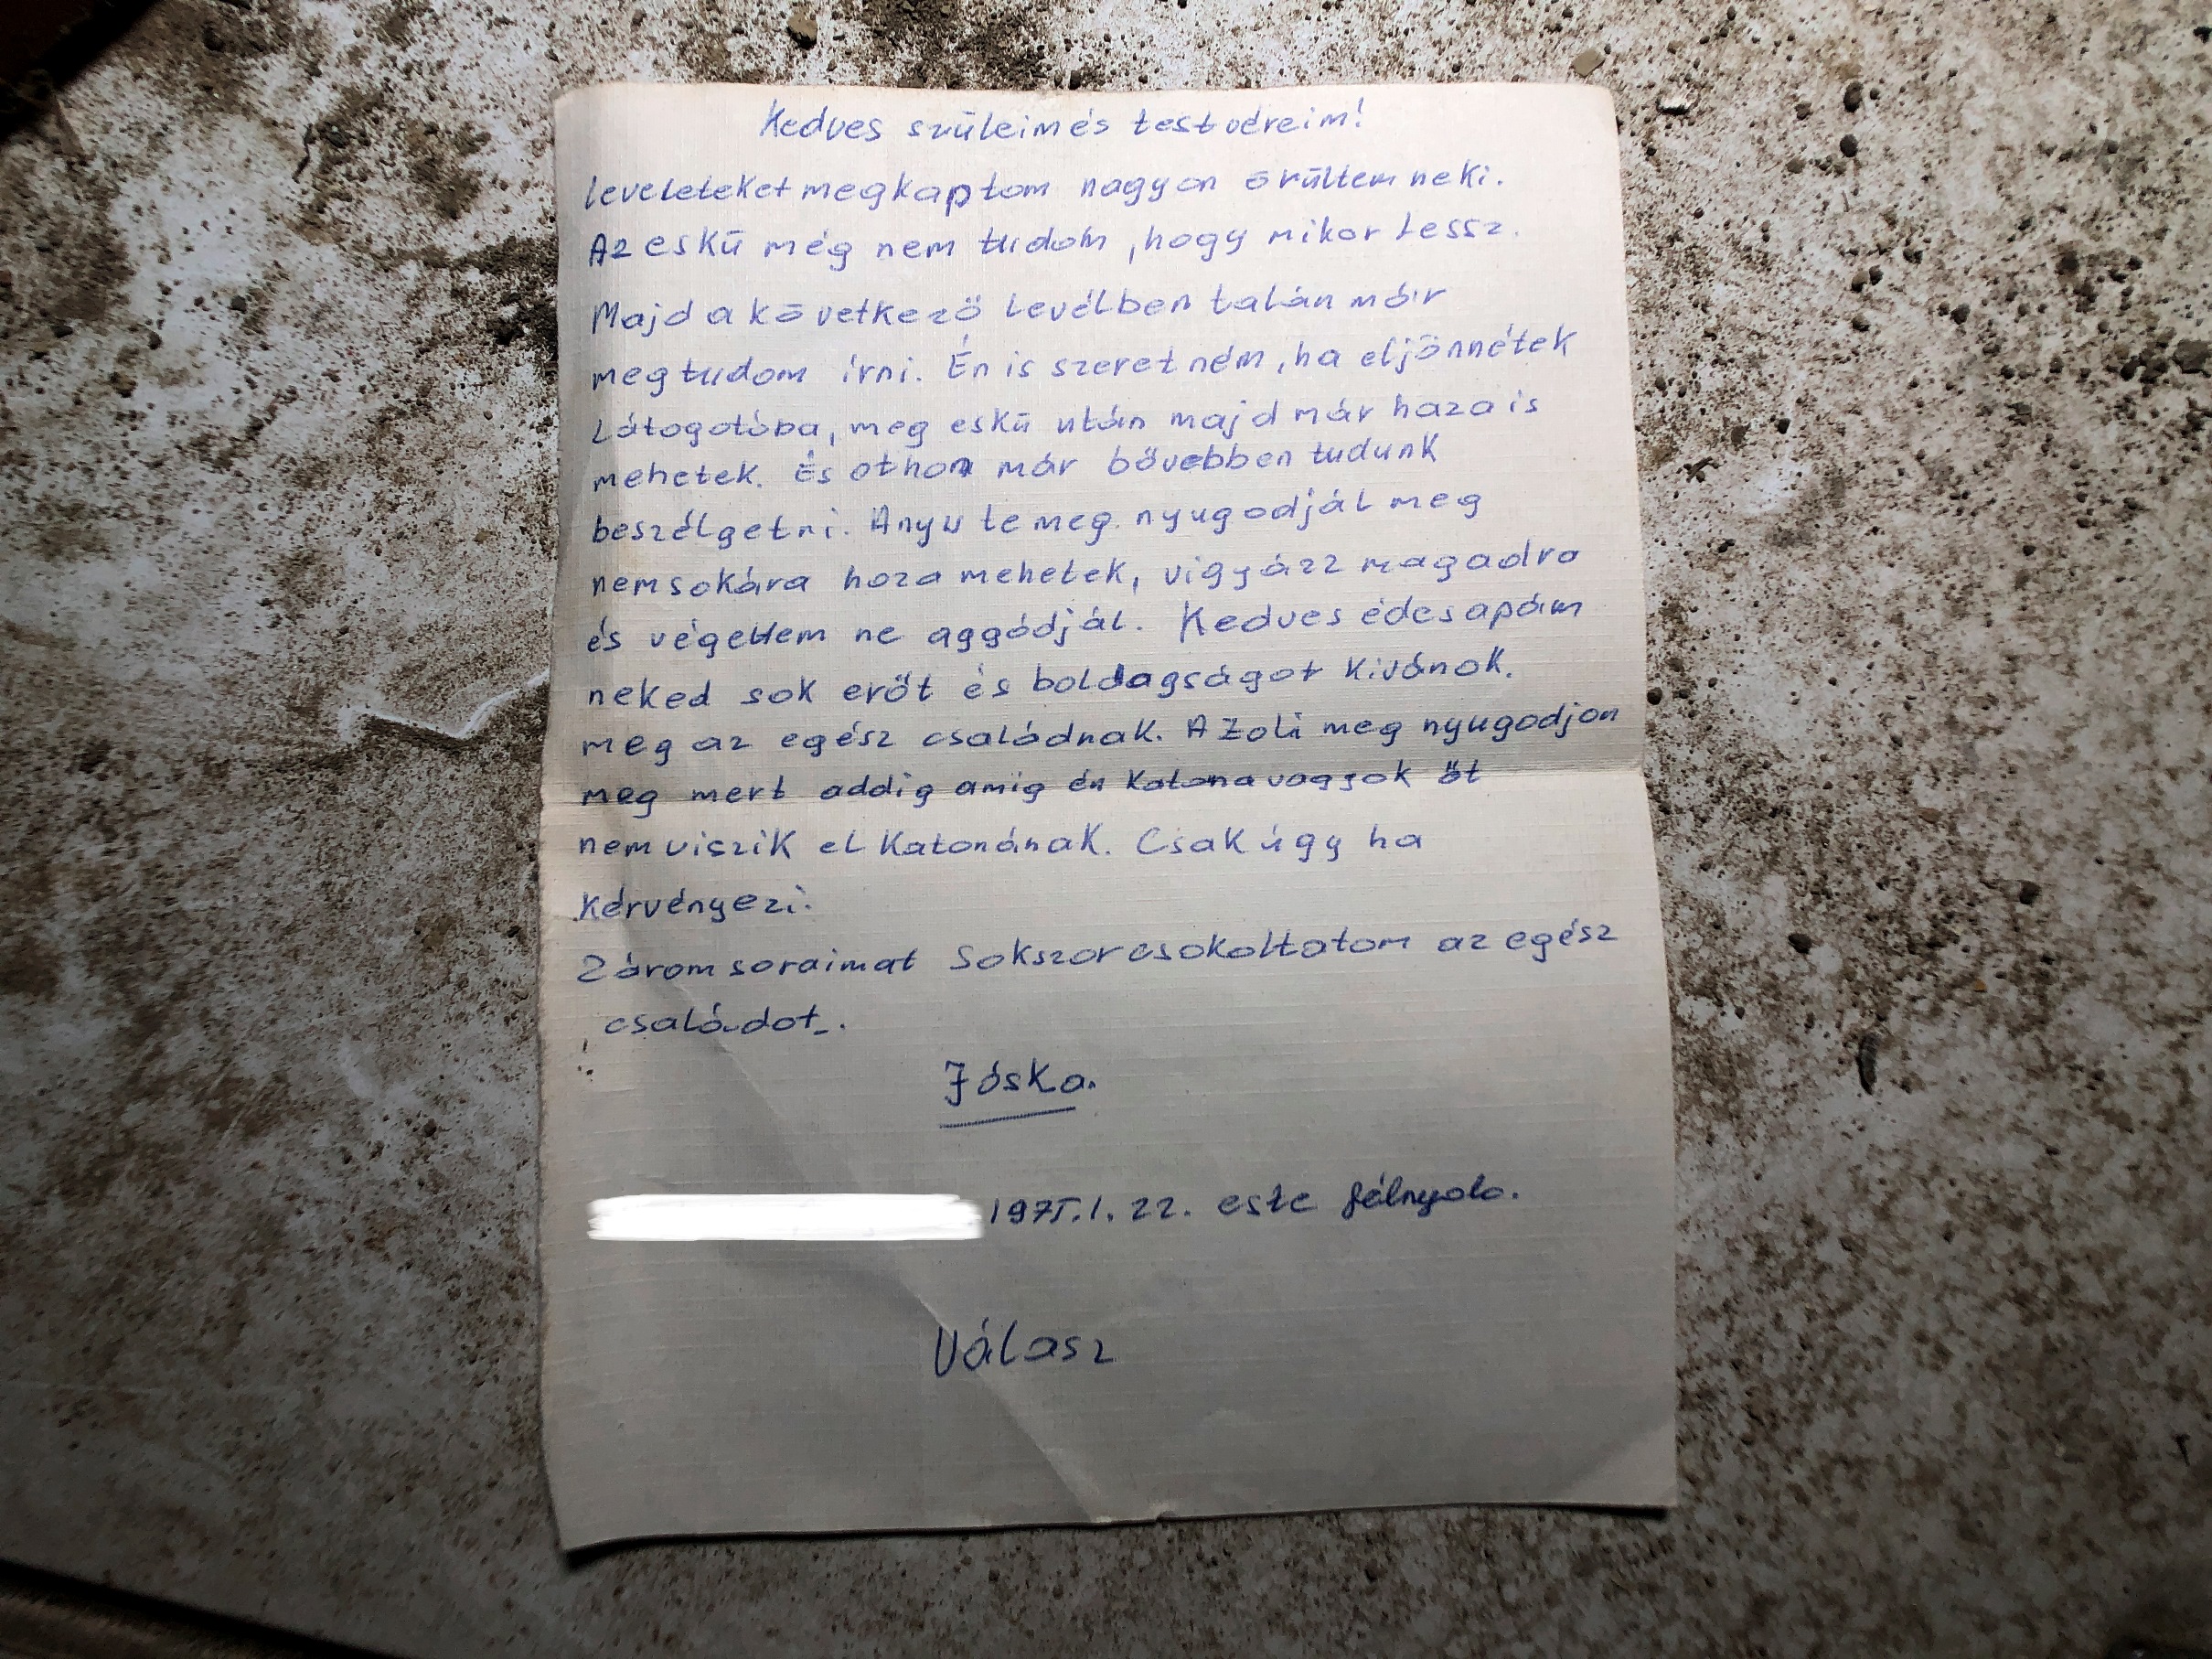 Kedves szüleim és testvéreim!
leveleteket megkaptom nagyon örültem neki.
Az eskü még nem tudom, hogy mikor Lessz.
Majd a következő levélben talán már
megtudom írni. Én is szeretném, ha eljönnétek
Látogatóba, meg eskü után majd már haza is
mehetek. És othon már bővebben tudunk
beszélgetni. Anyu te meg nyugodjál meg
nemsokára haza mehetek, vigyázz magadra
és végettem ne aggódjál. Kedves édesapám
neked sok erőt és boldagságot kivánok.
meg az egész családnak. A Zoli meg nyugodjon
meg mert addig amig én katona vagyok őt
nem viszik el katonának. Csak úgy ha
kérvényezi.
Zárom soraimat Sokszor csokoltatom az egész
családot.
Jóska.
1975.1.22. este félnyolc.
Válasz